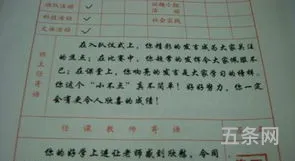 班队活动 ✓ 兴趣小组活动
科技活动 ✓ 社会实践
文体活动 ✓
班主任寄语
在入队仪式上，你精彩的发言成为大家关注
的焦点；在比赛中，你超常的发挥令大家佩服不
已；在课堂上，你响亮的发言是大家学习的榜样。
你这个“小不点”真不简单！好好努力，你一定
会有更令人欣喜的成绩！
任课教师寄语
你的好学上进让老师感到欣慰，今同
五条网
www.wtabcd.cn